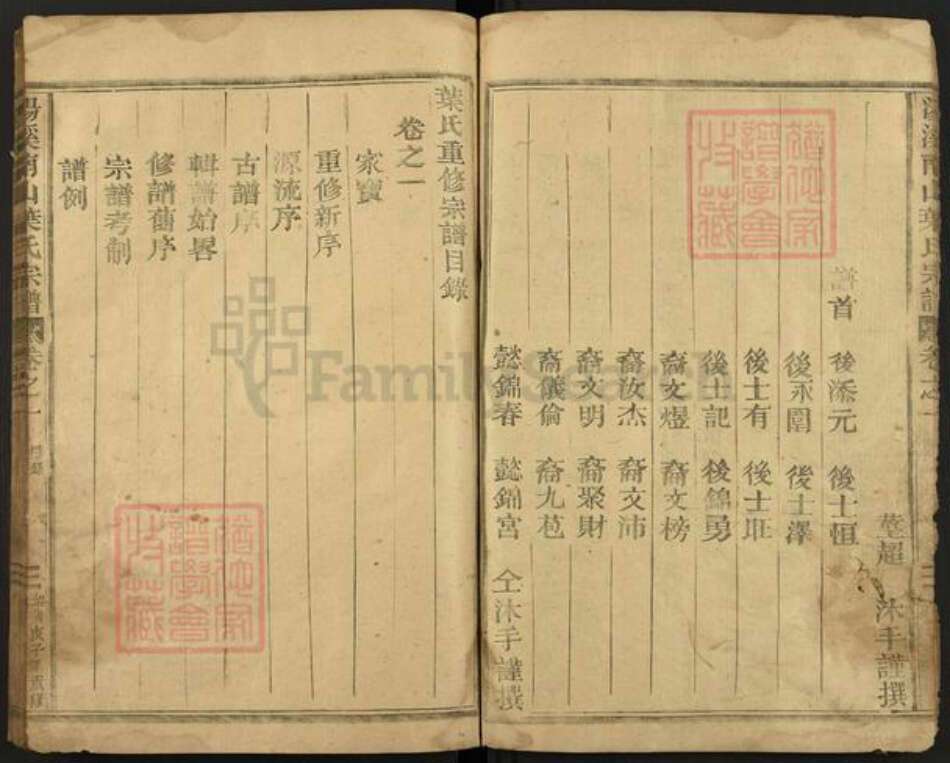 超 沐手謹撰
譜首 後添元 後士恒
後永圍 後士澤
後士有 後士旺
後士記 後錦勇
裔文煜 裔文榜
裔汝杰 裔文沛
裔文明 裔聚財
裔儀倫 裔九苞
懿錦春 懿錦宮 仝沐手謹撰
葉氏重修宗譜目錄
卷之一
家寶
重修新序
源流序
古譜序
輯譜始畧
修譜舊序
宗譜考制
譜例
湯溪南山葉氏宗譜 卷之一
FamilySearch